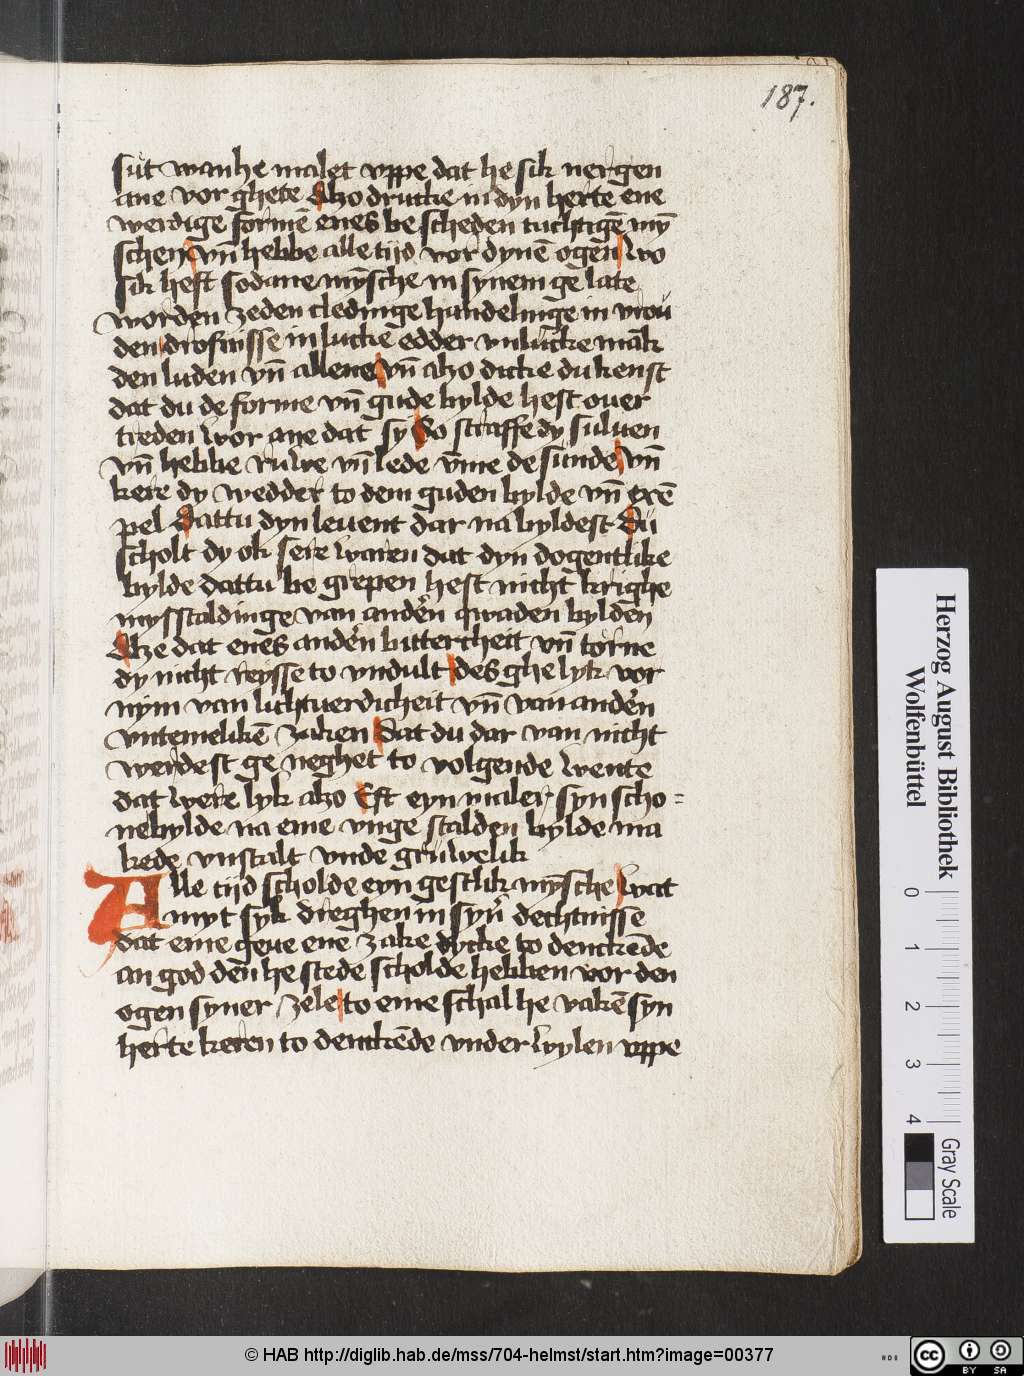 187.
süt wan he malet vppe dat he sik nergen
ane vor ghete Alzo drucke in dyn herte ene
werdige formē enes be scheden tuchtigē mȳ
schen vn̄ hebbe alle tijd vor dynē ogen wo
sik heft sodane mȳsche in synem ge late
worden zeden cledinge handelinge in vrou
den drofnisse in lucke edder vnlucke mäk
den luden vn̄ allene vn̄ alzo dicke du kenst
dat du de forme vn̄ gude bylde hest ouer
treden wor ane dat sy So straffe dy suluen
vn̄ hebbe ruwe vn̄ lede vm̄e de sunde vn̄
kere dy wedder to dem guden bylde vn̄ exē
pel Dattu dyn leuent dar na byldest Du
scholt dy ok sere waren dat dyn dogentlike
bylde dattu be grepen hest nicht krighe
mysstaldinge van anden qwaden bylden
Alze dat enes anden bittercheit vn̄ torne
dy nicht reysse to vndult des ghe lyk vor
nym van lichtuerdicheit vn̄ van anden
vntemelikē zaken Dat du dar van nicht
werdest ge neghet to volgende wente
dat were lyk alzo Eft eyn maler syn scho=
ne bylde na eme vnge stalden bylde ma
kede vnstalt vnde gruwelik
Alle tijd scholde eyn gestlik mȳsche wat
myt syk dreghen in syn dechtnisse
dat eme geue ene zake dycke to denckēde
an god den he stede scholde hebben vor den
ogen syner zele to eme schal he vakē syn
herte keren to denckēde vnder wylen vppe
Herzog August Bibliothek
Wolfenbüttel
0 1 2 3 4
Gray Scale
© HAB http://diglib.hab.de/mss/704-helmst/start.htm?image=00377
cc BY SA